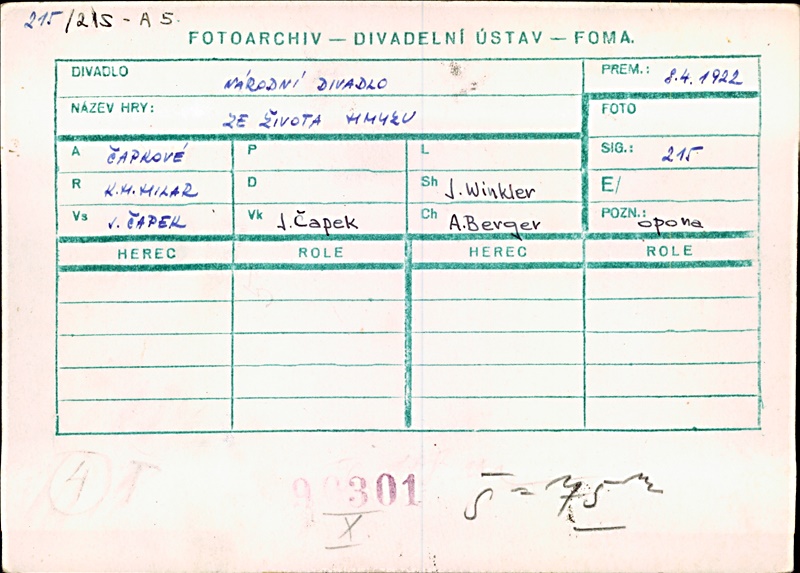 215/215 - A 5.
FOTOARCHIV — DIVADELNÍ ÚSTAV — FOMA.
DIVADLO NÁRODNÍ DIVADLO PREM.: 8.4.1922
NÁZEV HRY: ZE ŽIVOTA HMYZU FOTO
A ČAPKOVÉ P L SIG.: 215
R K.H.HILAR D Sh J.Winkler E/
Vs J.ČAPEK Vk J.Čapek Ch A.Berger POZN.: opona
HEREC ROLE HEREC ROLE
4
301
X